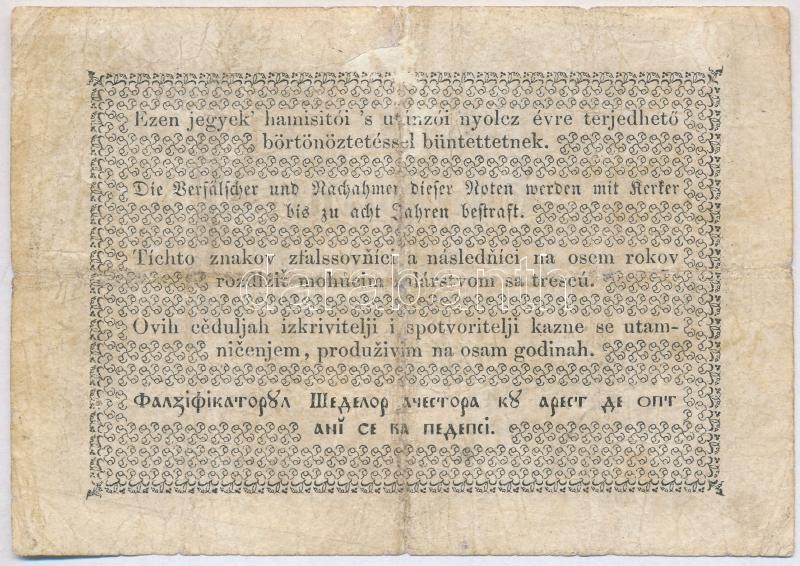 Ezen jegyek' hamisitói 's utánzói nyolcz évre terjedhető
börtönöztetéssel büntettetnek.
Die Verfälscher und Nachahmer dieser Noten werden mit Kerker
bis zu acht Jahren bestraft.
Tíchto znakov zfalssovňíci a následňíci na osem rokov
mohúcim sa trescú.
Ovih cěduljah izkrivitelji i spotvoritelji kazne se utam-
ničenjem, produživim na osam godinah.
Фалꙋіфікаторꙋл Шеделор ачестора кꙋ арест де опт
анї се ва педепсі.
darabanth